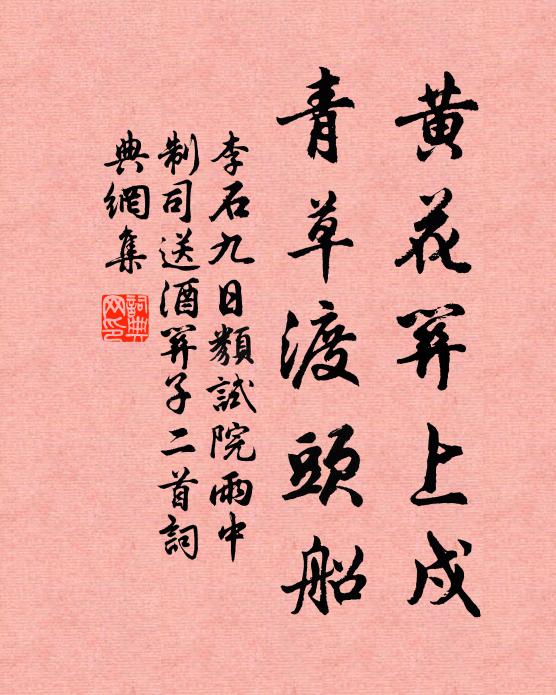 黄花笄上戍
青草渡頭船
李石九日類試院雨中
制司送酒笄子二首詞
典網集
詞典
网印